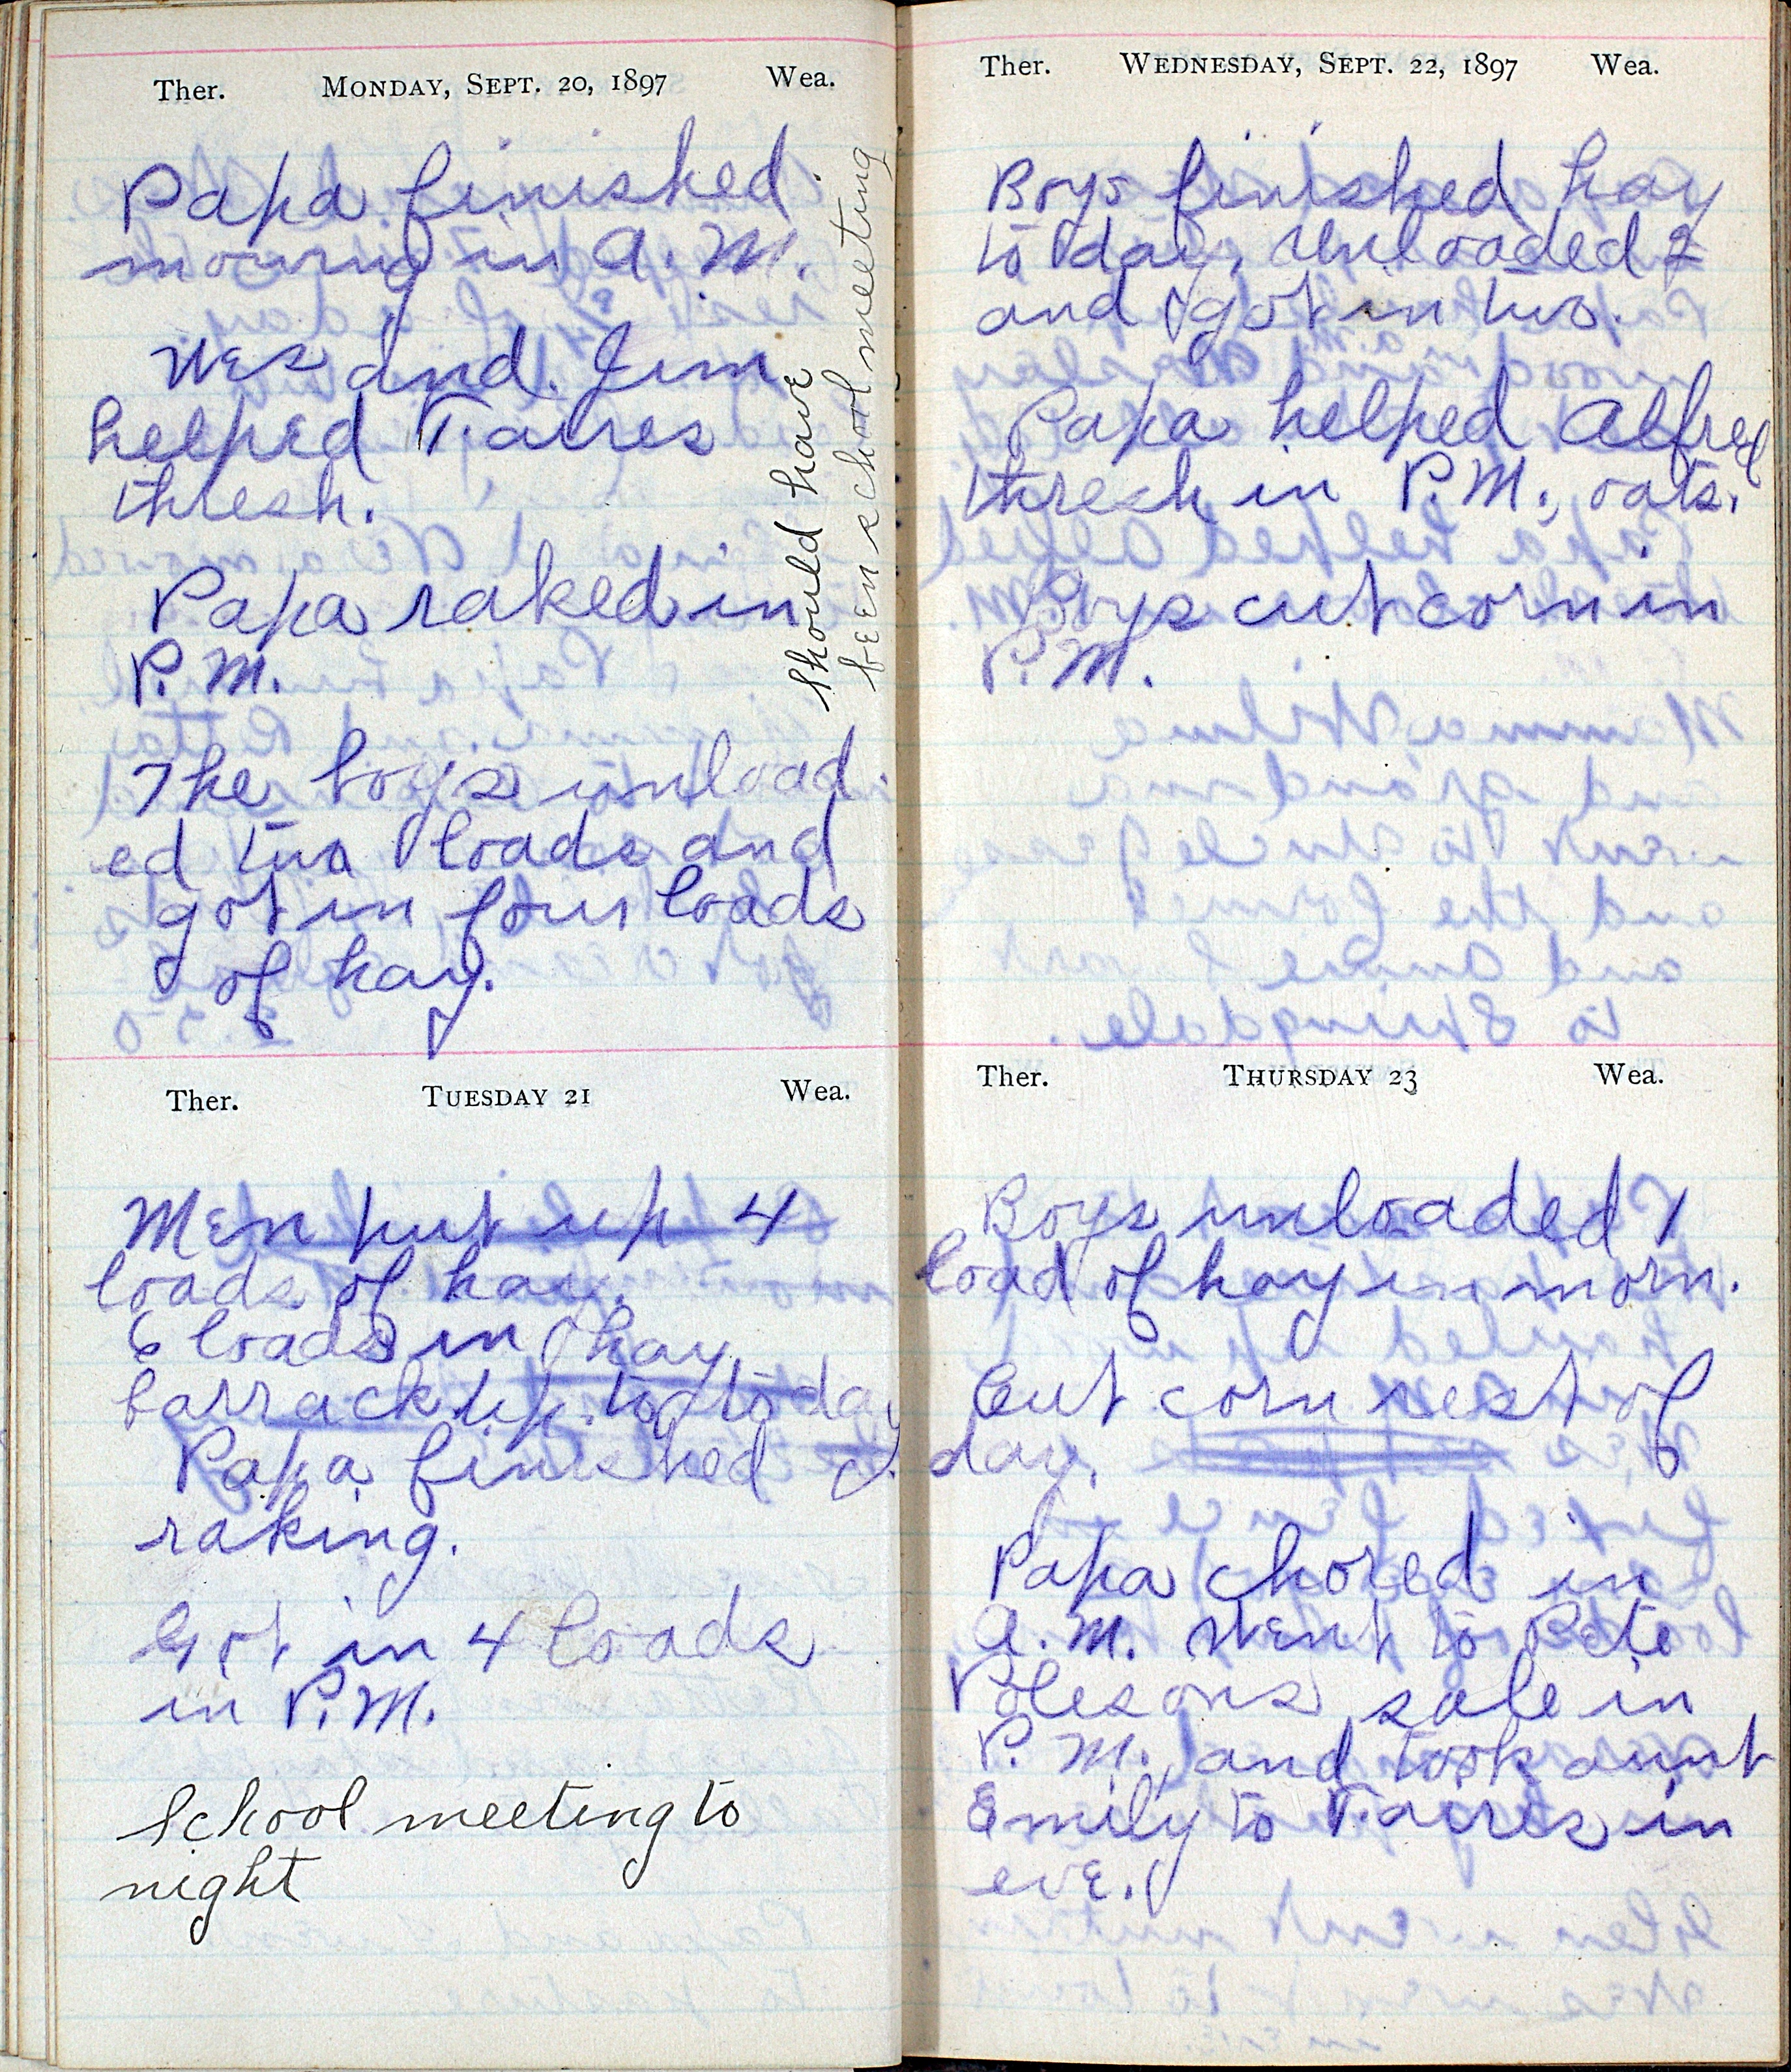 Ther. Monday, Sept. 20, 1897 Wea.
Papa finished
mowing in A.M.
Wes and Jim
helped T. aires
thresh.
Papa raked in
P.M.
The boys unload-
ed two loads and
got in four loads
of hay.
should have
been school meeting
Ther. Tuesday 21 Wea.
Men put up 4
loads of hay.
6 loads in hay
barrack up to to day
Papa finished
raking.
Got in 4 loads
in P.M.
School meeting to
night
Ther. Wednesday, Sept. 22, 1897 Wea.
Boys finished hay
to day, unloaded 2
and got in two.
Papa helped Alfred
thresh in P.M., oats.
Boys cut corn in
P.M.
Ther. Thursday 23 Wea.
Boys unloaded 1
load of hay in morn.
Cut corn rest of
day.
Papa chored in
A.M. went to Pete
Polesons sale in
P.M. and took aunt
Emily to T. acres in
eve.